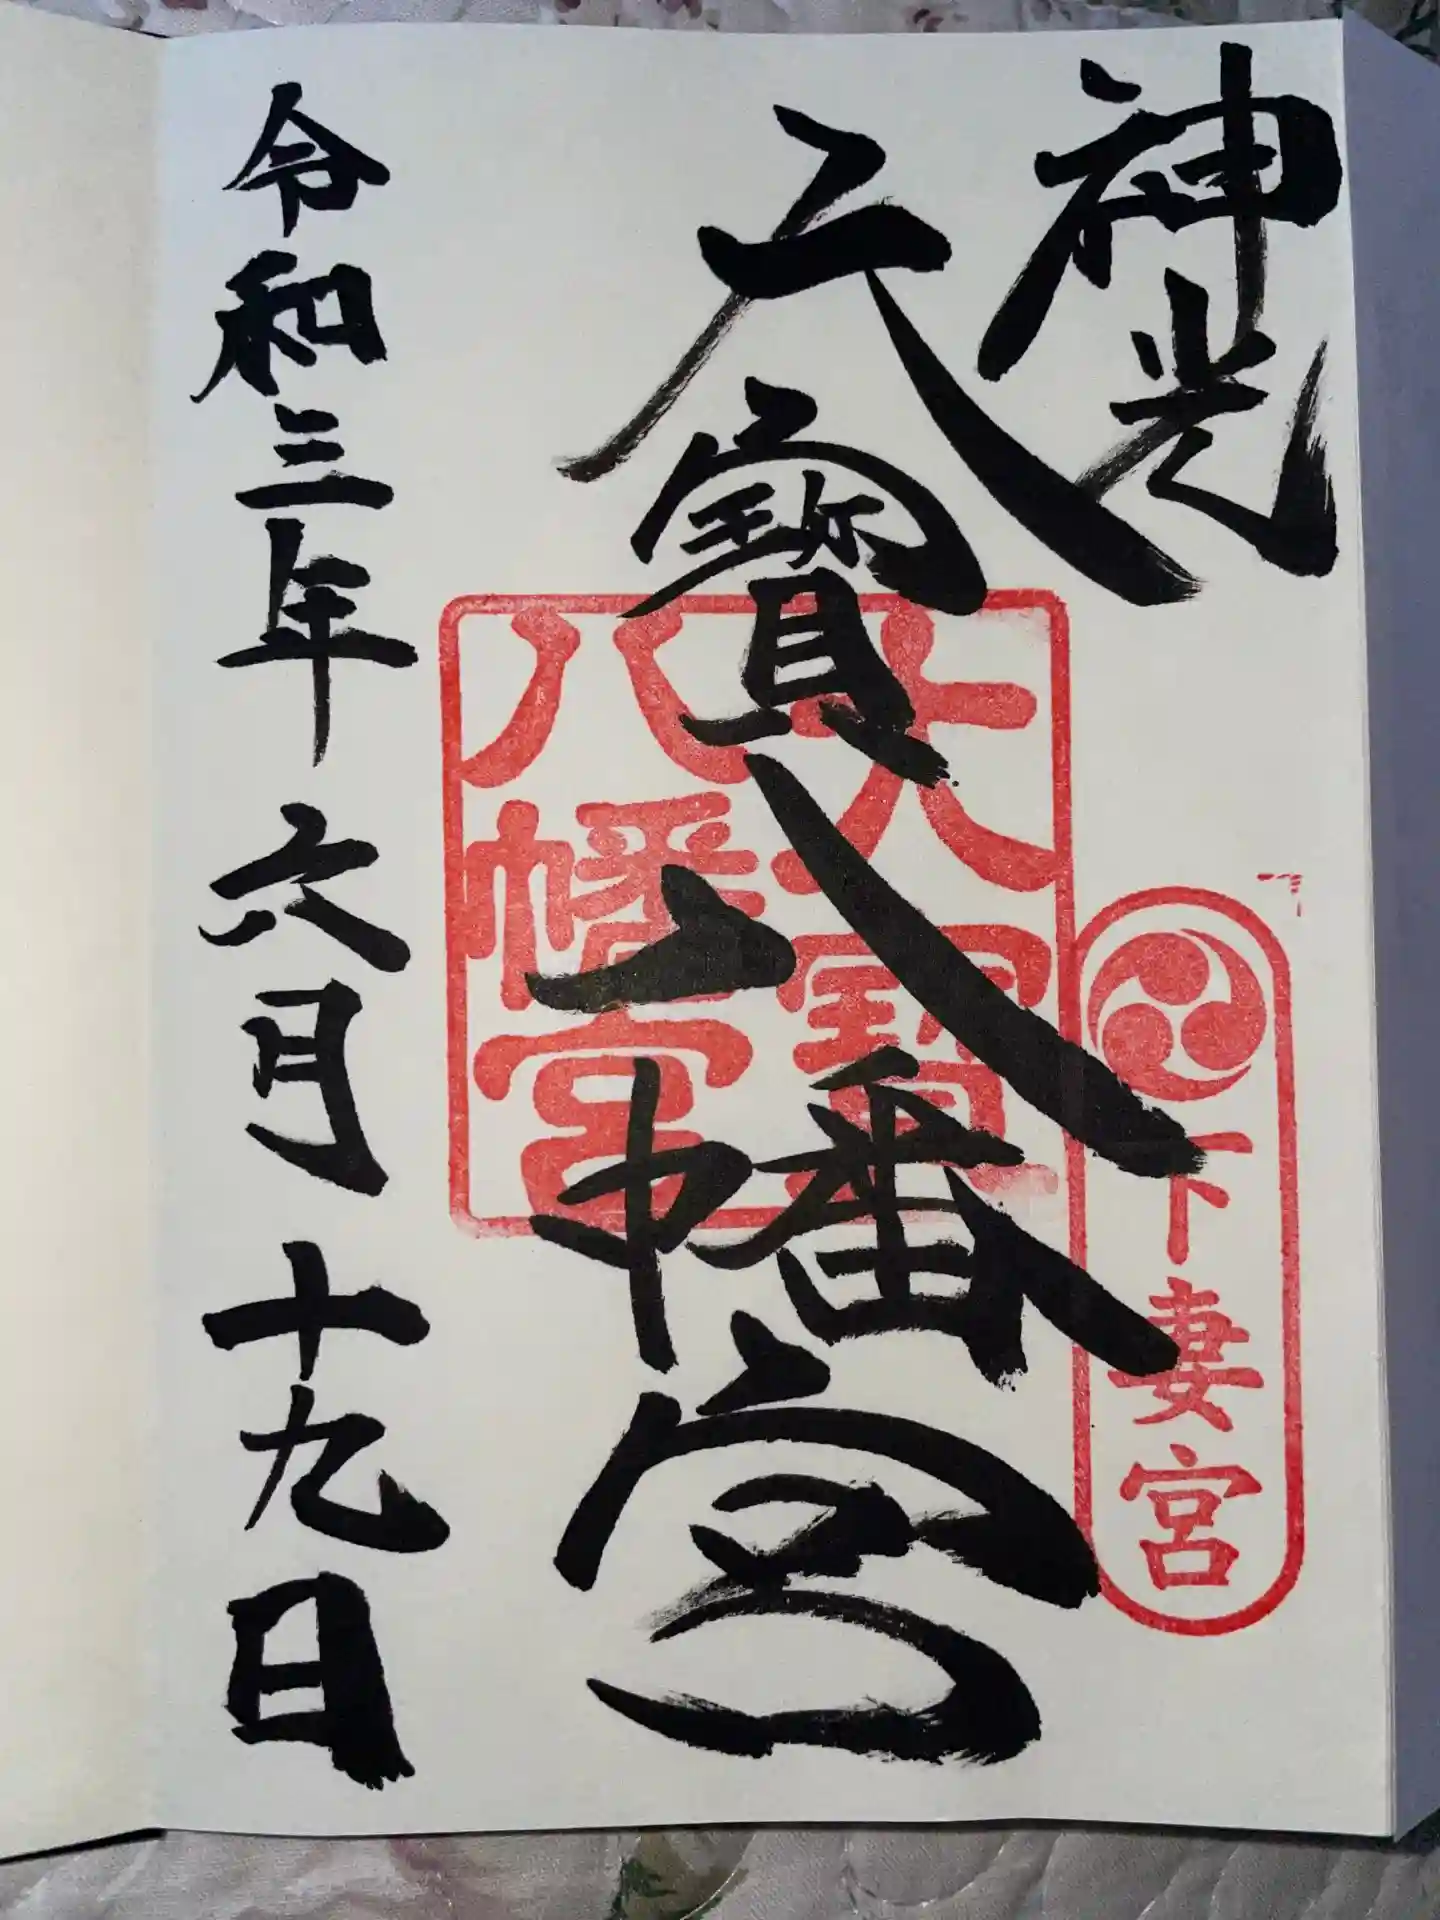 神光
大寶八幡宮
令和三年六月十九日
下妻宮
大寶
八幡宮